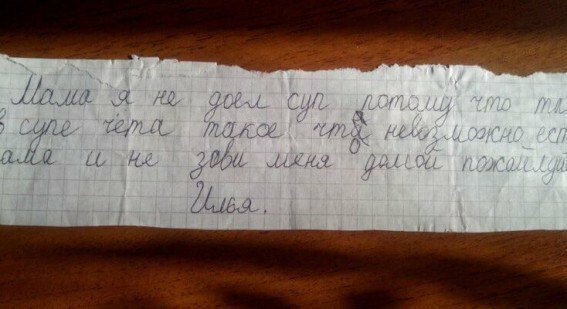 Мама я не доел суп потому что т
в супе чета такое что невозможно ест
ама и не зови меня домой пожайлуда
Илья.